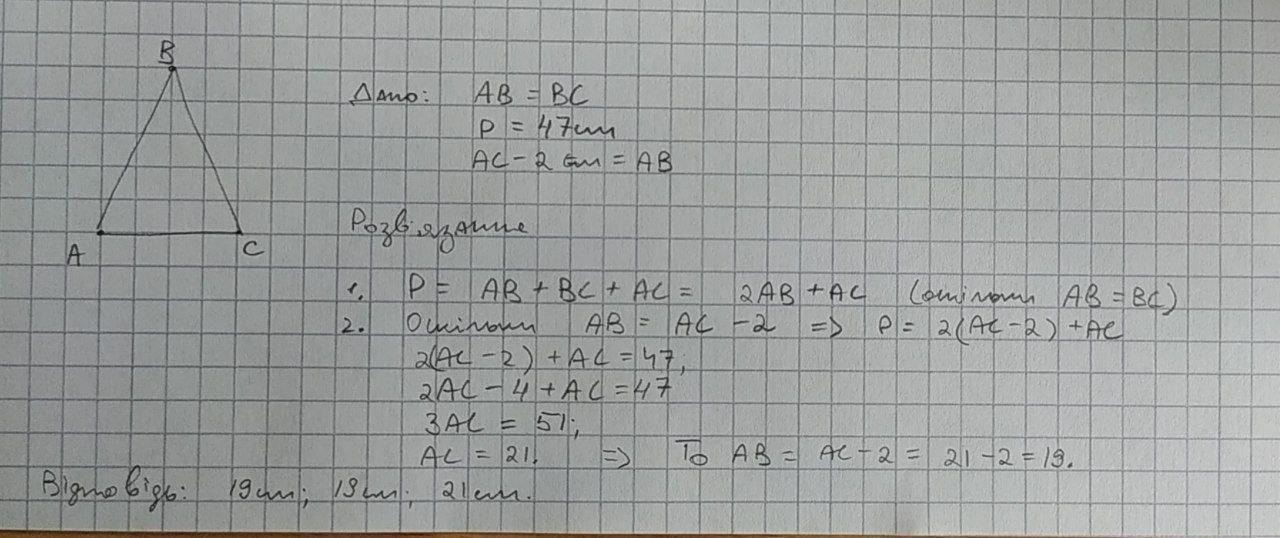 B
A
C
Дано: AB = BC
P = 47см
AC - 2 см = AB
Розв'язання
1. P = AB + BC + AC = 2AB + AC (оскільки AB = BC)
2. Оскільки AB = AC - 2 => P = 2(AC - 2) + AC
2(AC - 2) + AC = 47;
2AC - 4 + AC = 47
3AC = 51;
AC = 21. => То AB = AC - 2 = 21 - 2 = 19.
Відповідь: 19см; 19см; 21см.